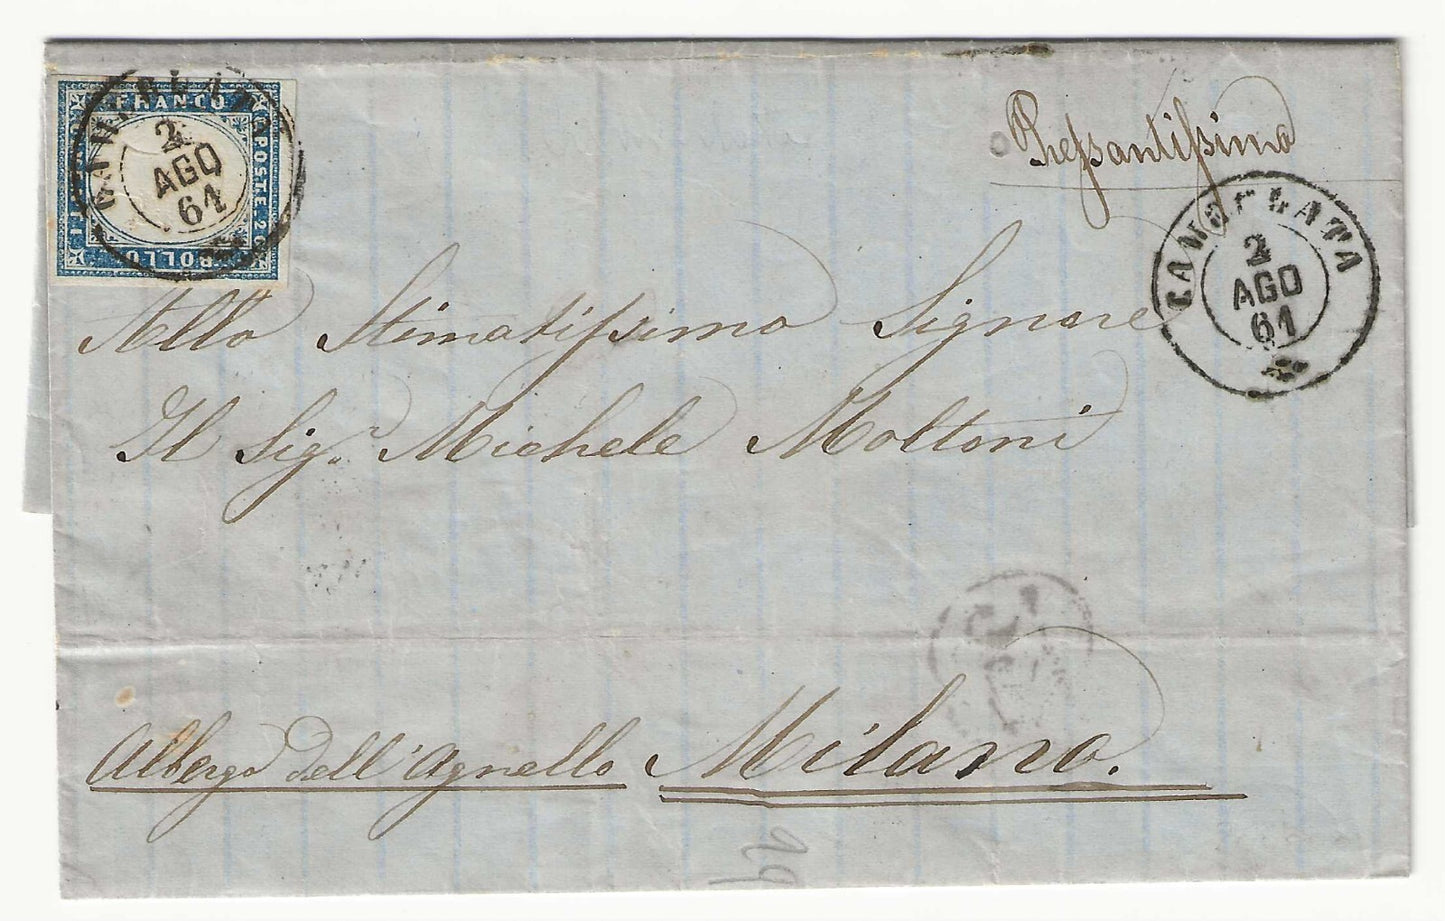 FRANCO
POSTE. 2
BOLLO
CANNELLATA
2
AGO
61
Pressantissima
CANNELLATA
2
AGO
61
Allo Stimatissimo Signore
Il Sig.r Michele Moltoni
Albergo dell'Agnello Milano.
29